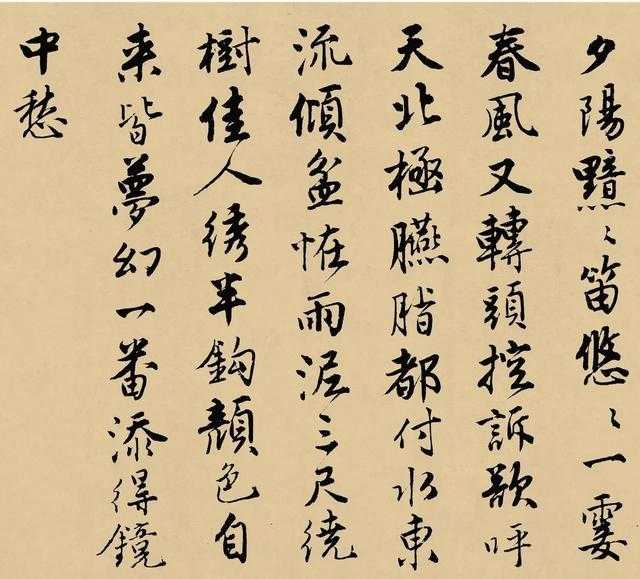 夕陽黯〻笛悠〻一霎
春風又轉頭控訴欲呼
天北極臙脂都付水東
流傾盆恠雨泥三尺繞
樹佳人綉半鈎顏色自
来皆夢幻一番添得鏡
中愁